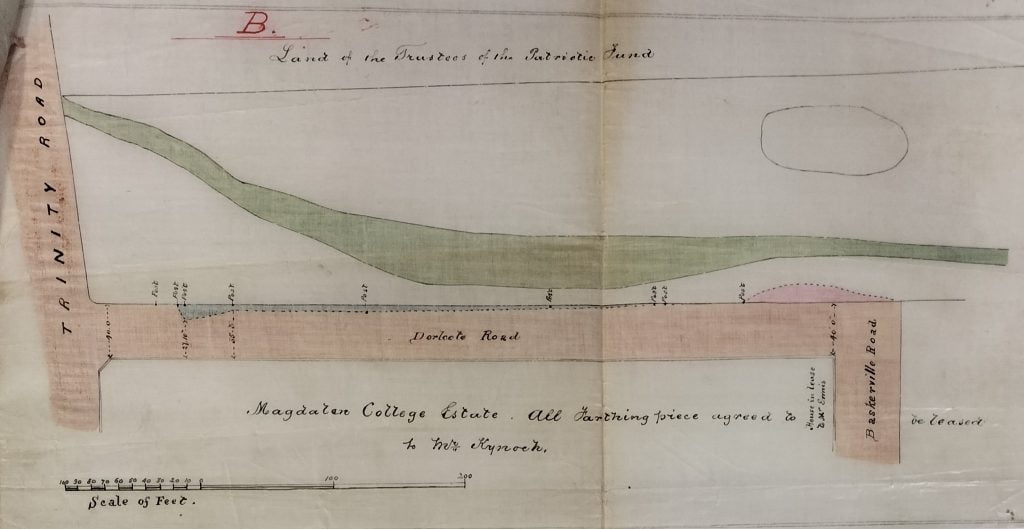 B.
Land of the Trustees of the Patriotic Fund
TRINITY ROAD
Post
Post
Post
Post
Post
Post
Post
Post
Post
40.0
40.0
Dorlcote Road
Baskerville Road
House in lease
to Mr Ennis
Magdalen College Estate. All Farthing piece agreed to be leased
to Mr Kynoch.
100 90 80 70 60 50 40 30 20 10 0 100 200
Scale of Feet.